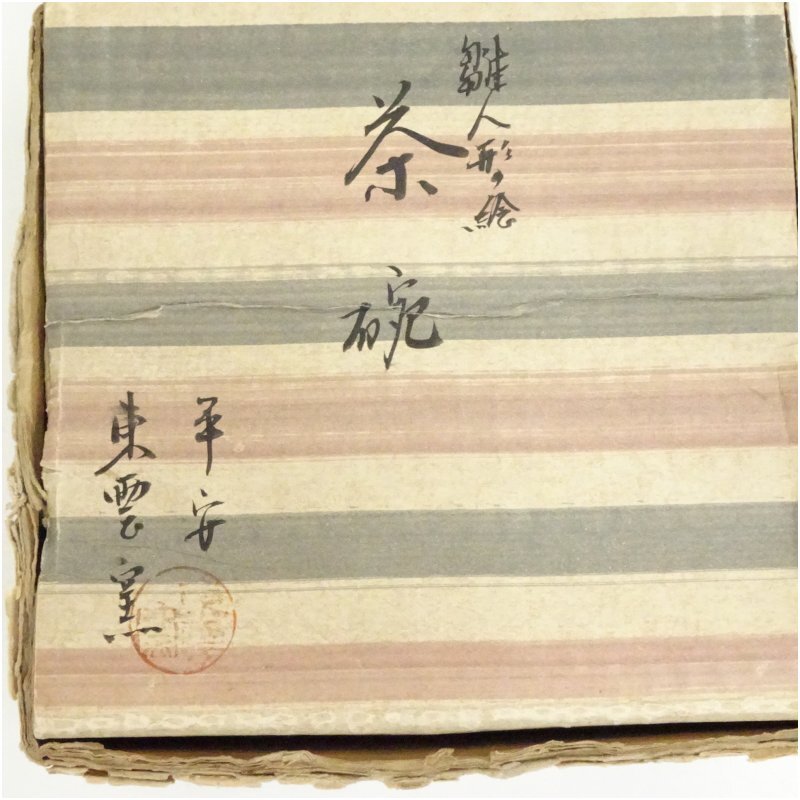 雛人形の絵
茶碗
平安
東雲窯